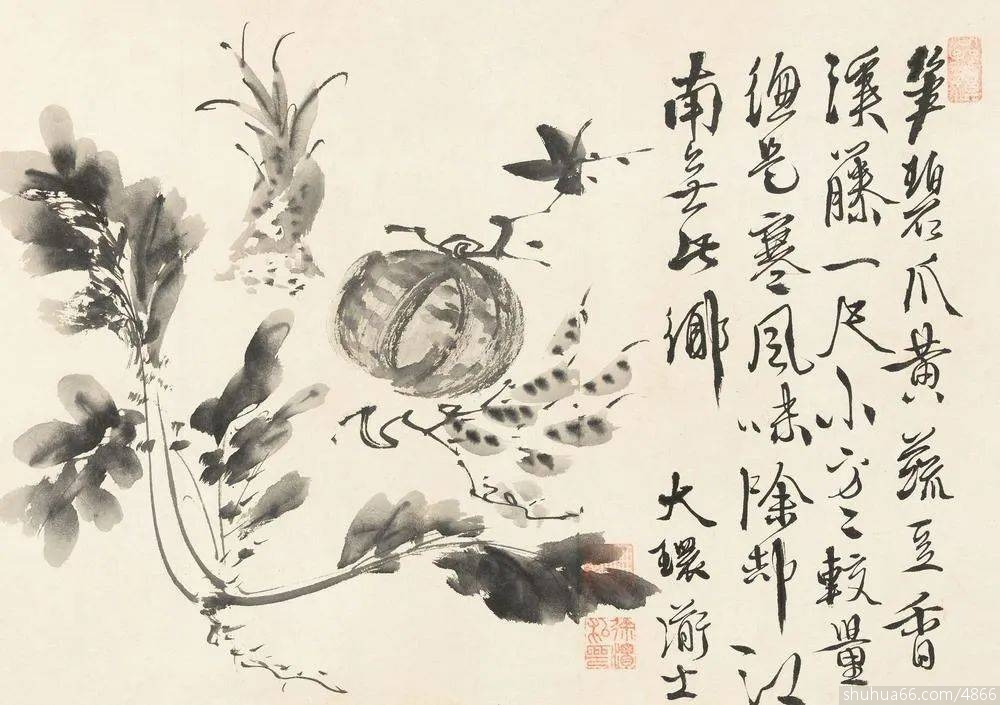 笋碧瓜黄蔬豆香
溪藤一尺小方々較量
總是寒風味除却江
南無此鄉
大環 士
shuhua66.com/4866